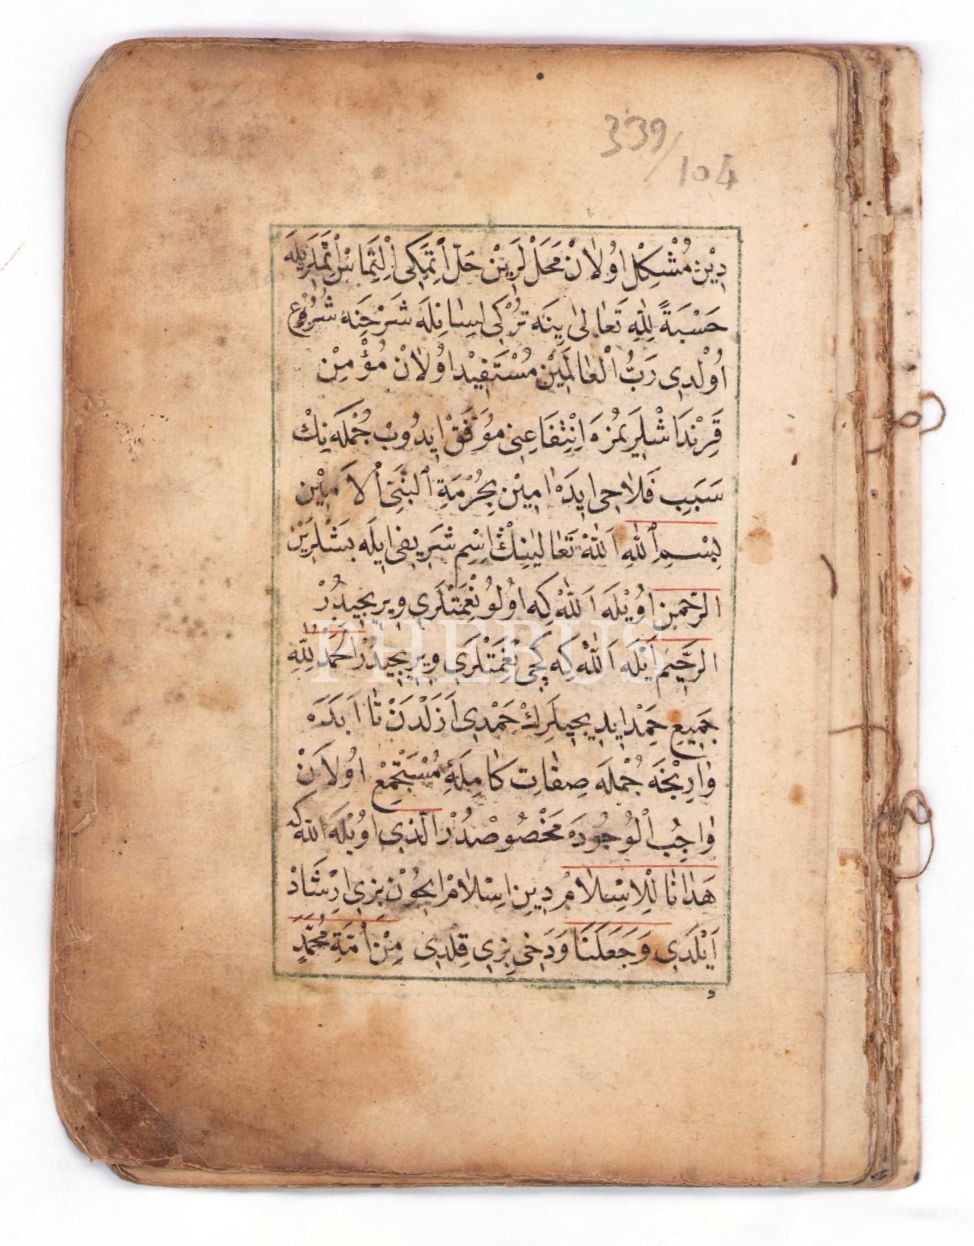 339/104
دِينْ مُشْكِلْ اُولَانْ مَحَلْ لَرِينْ حَلّ اَتِمَكِى اِلْتِمَاسْ اَتَمَلَرِيلَه
حَسْبَةً لِلّٰهِ تَعَالىٰ يِنَه تُرْكِى لِسَانِلَه شَرْحِنَه شُرُوعْ
اُولْدِى رَبُّ الْعَالَمِينْ مُسْتَفِيدْ اُولَانْ مُؤْمِنْ
قَرِنْدَاشْلَرِيمُزَه اِنْتِفَاعِنِى مُوَفَّقْ اِيدُوبْ جُمْلَه نِكْ
سَبَبِ فَلَاحِى اِيدَه اٰمِينْ بِحُرْمَةِ النَّبِىِّ الْاَمِينْ
بِسْمِ اللّٰهِ اَللّٰهُ تَعَالٰينِكْ اِسْمِ شَرِيفِى اِيلَه بَشْلَرِينْ
الرَّحْمٰنِ اُويْلَه اَللّٰهْ كِه اُولُو نِعْمَتْلَرِى وِيرِيجِيدُرْ
الرَّحِيمِ اَيْلَه اَللّٰهْ كِه كِچِى نِعْمَتْلَرِى وِيرِيجِيدُرْ اَلْحَمْدُ لِلّٰهِ
جَمِيعِ حَمْد اِيدِيجِيلَرِكْ حَمْدِى اَزَلْدَنْ تَا اَبَدَه
وَارِنْجَه جُمْلَه صِفَاتِ كَامِلَةِ مُسْتَجْمِعْ اُولَانْ
وَاجِبُ الْوُجُودَه مَخْصُوصْدُرْ الَّذِى اُويْلَه اَللّٰهْ كِه
هَدَانَا لِلْاِسْلَامِ دِينِ اِسْلَامْ اِيچُونْ بِزِى اِرْشَادْ
اَيْلَدِى وَجَعَلَنَا وَدَخِى بِزِى قِلْدِى مِنْ اُمَّةِ مُحَمَّدٍ
و
PHEBUS